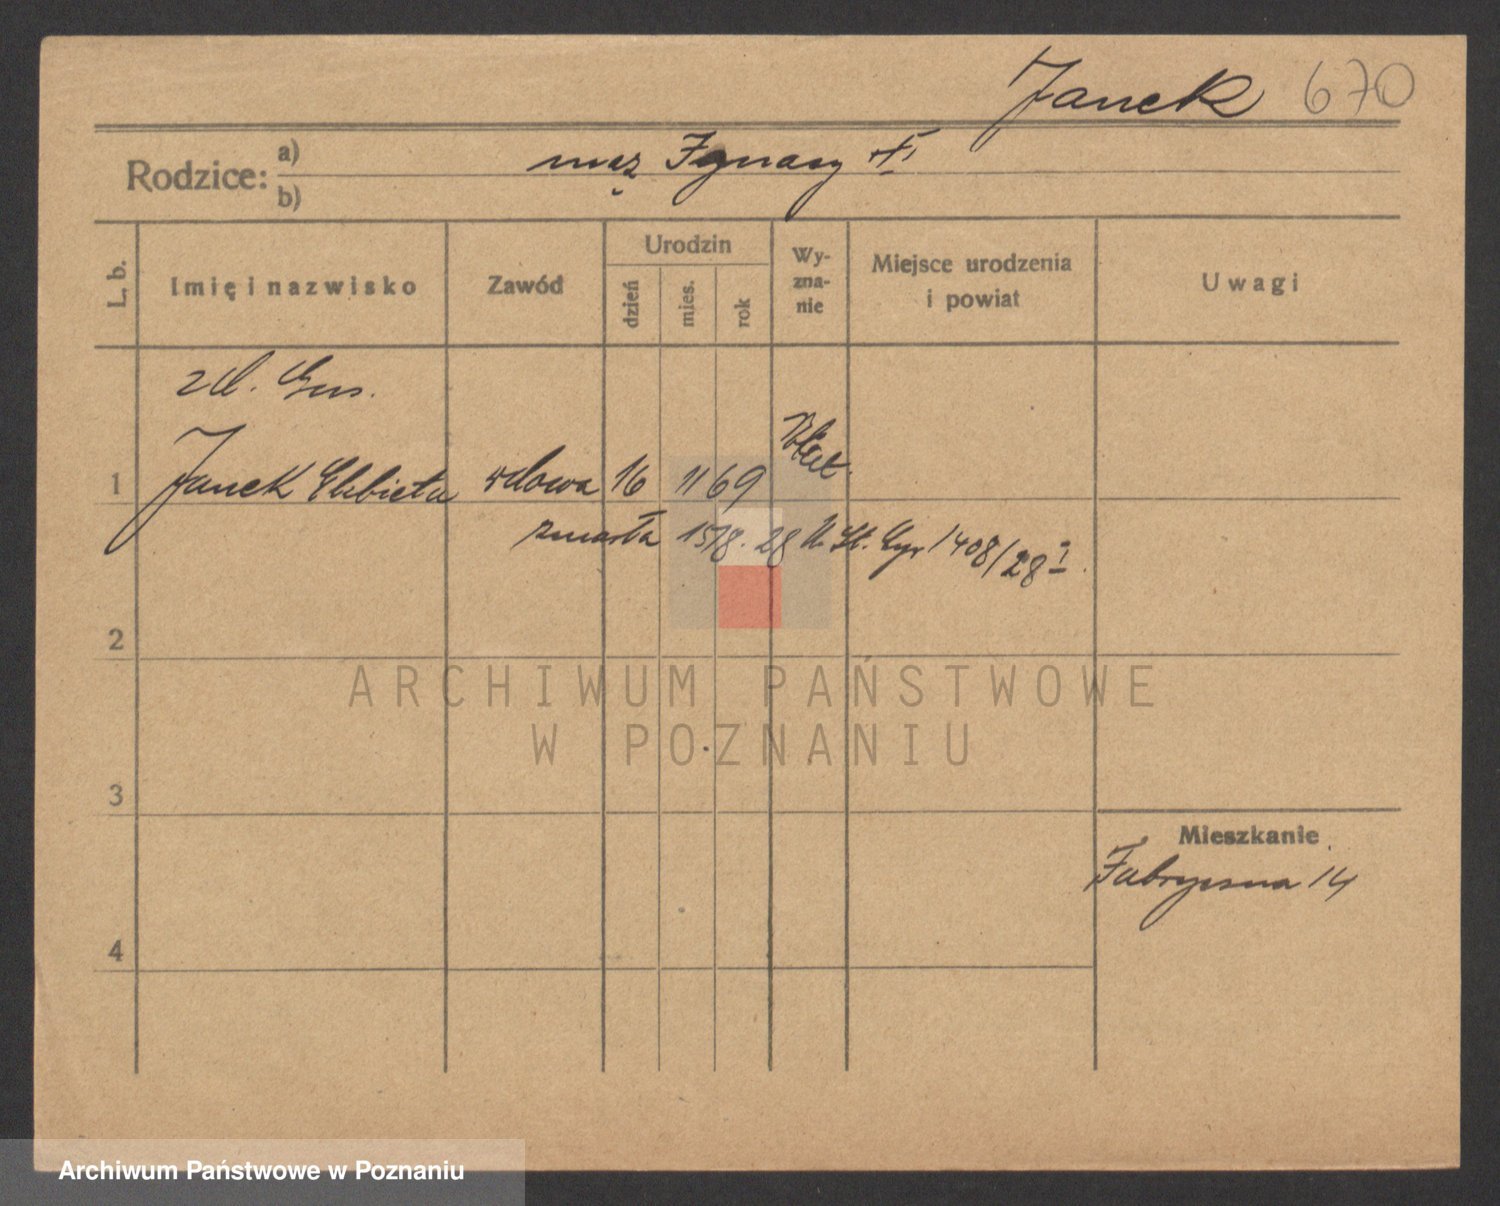 Janek 670
Rodzice: a) mąż Ignacy
b)
L. b.
Imię i nazwisko
Zawód
Urodzin
dzień
mies.
rok
Wy-
zna-
nie
Miejsce urodzenia
i powiat
Uwagi
zd.
1 Janek Elżbieta wdowa 16 11 69
zmarła 15/8. 28 1408/28 I
2
3
4
Mieszkanie
Fabryczna 14
ARCHIWUM PAŃSTWOWE
W POZNANIU
Archiwum Państwowe w Poznaniu